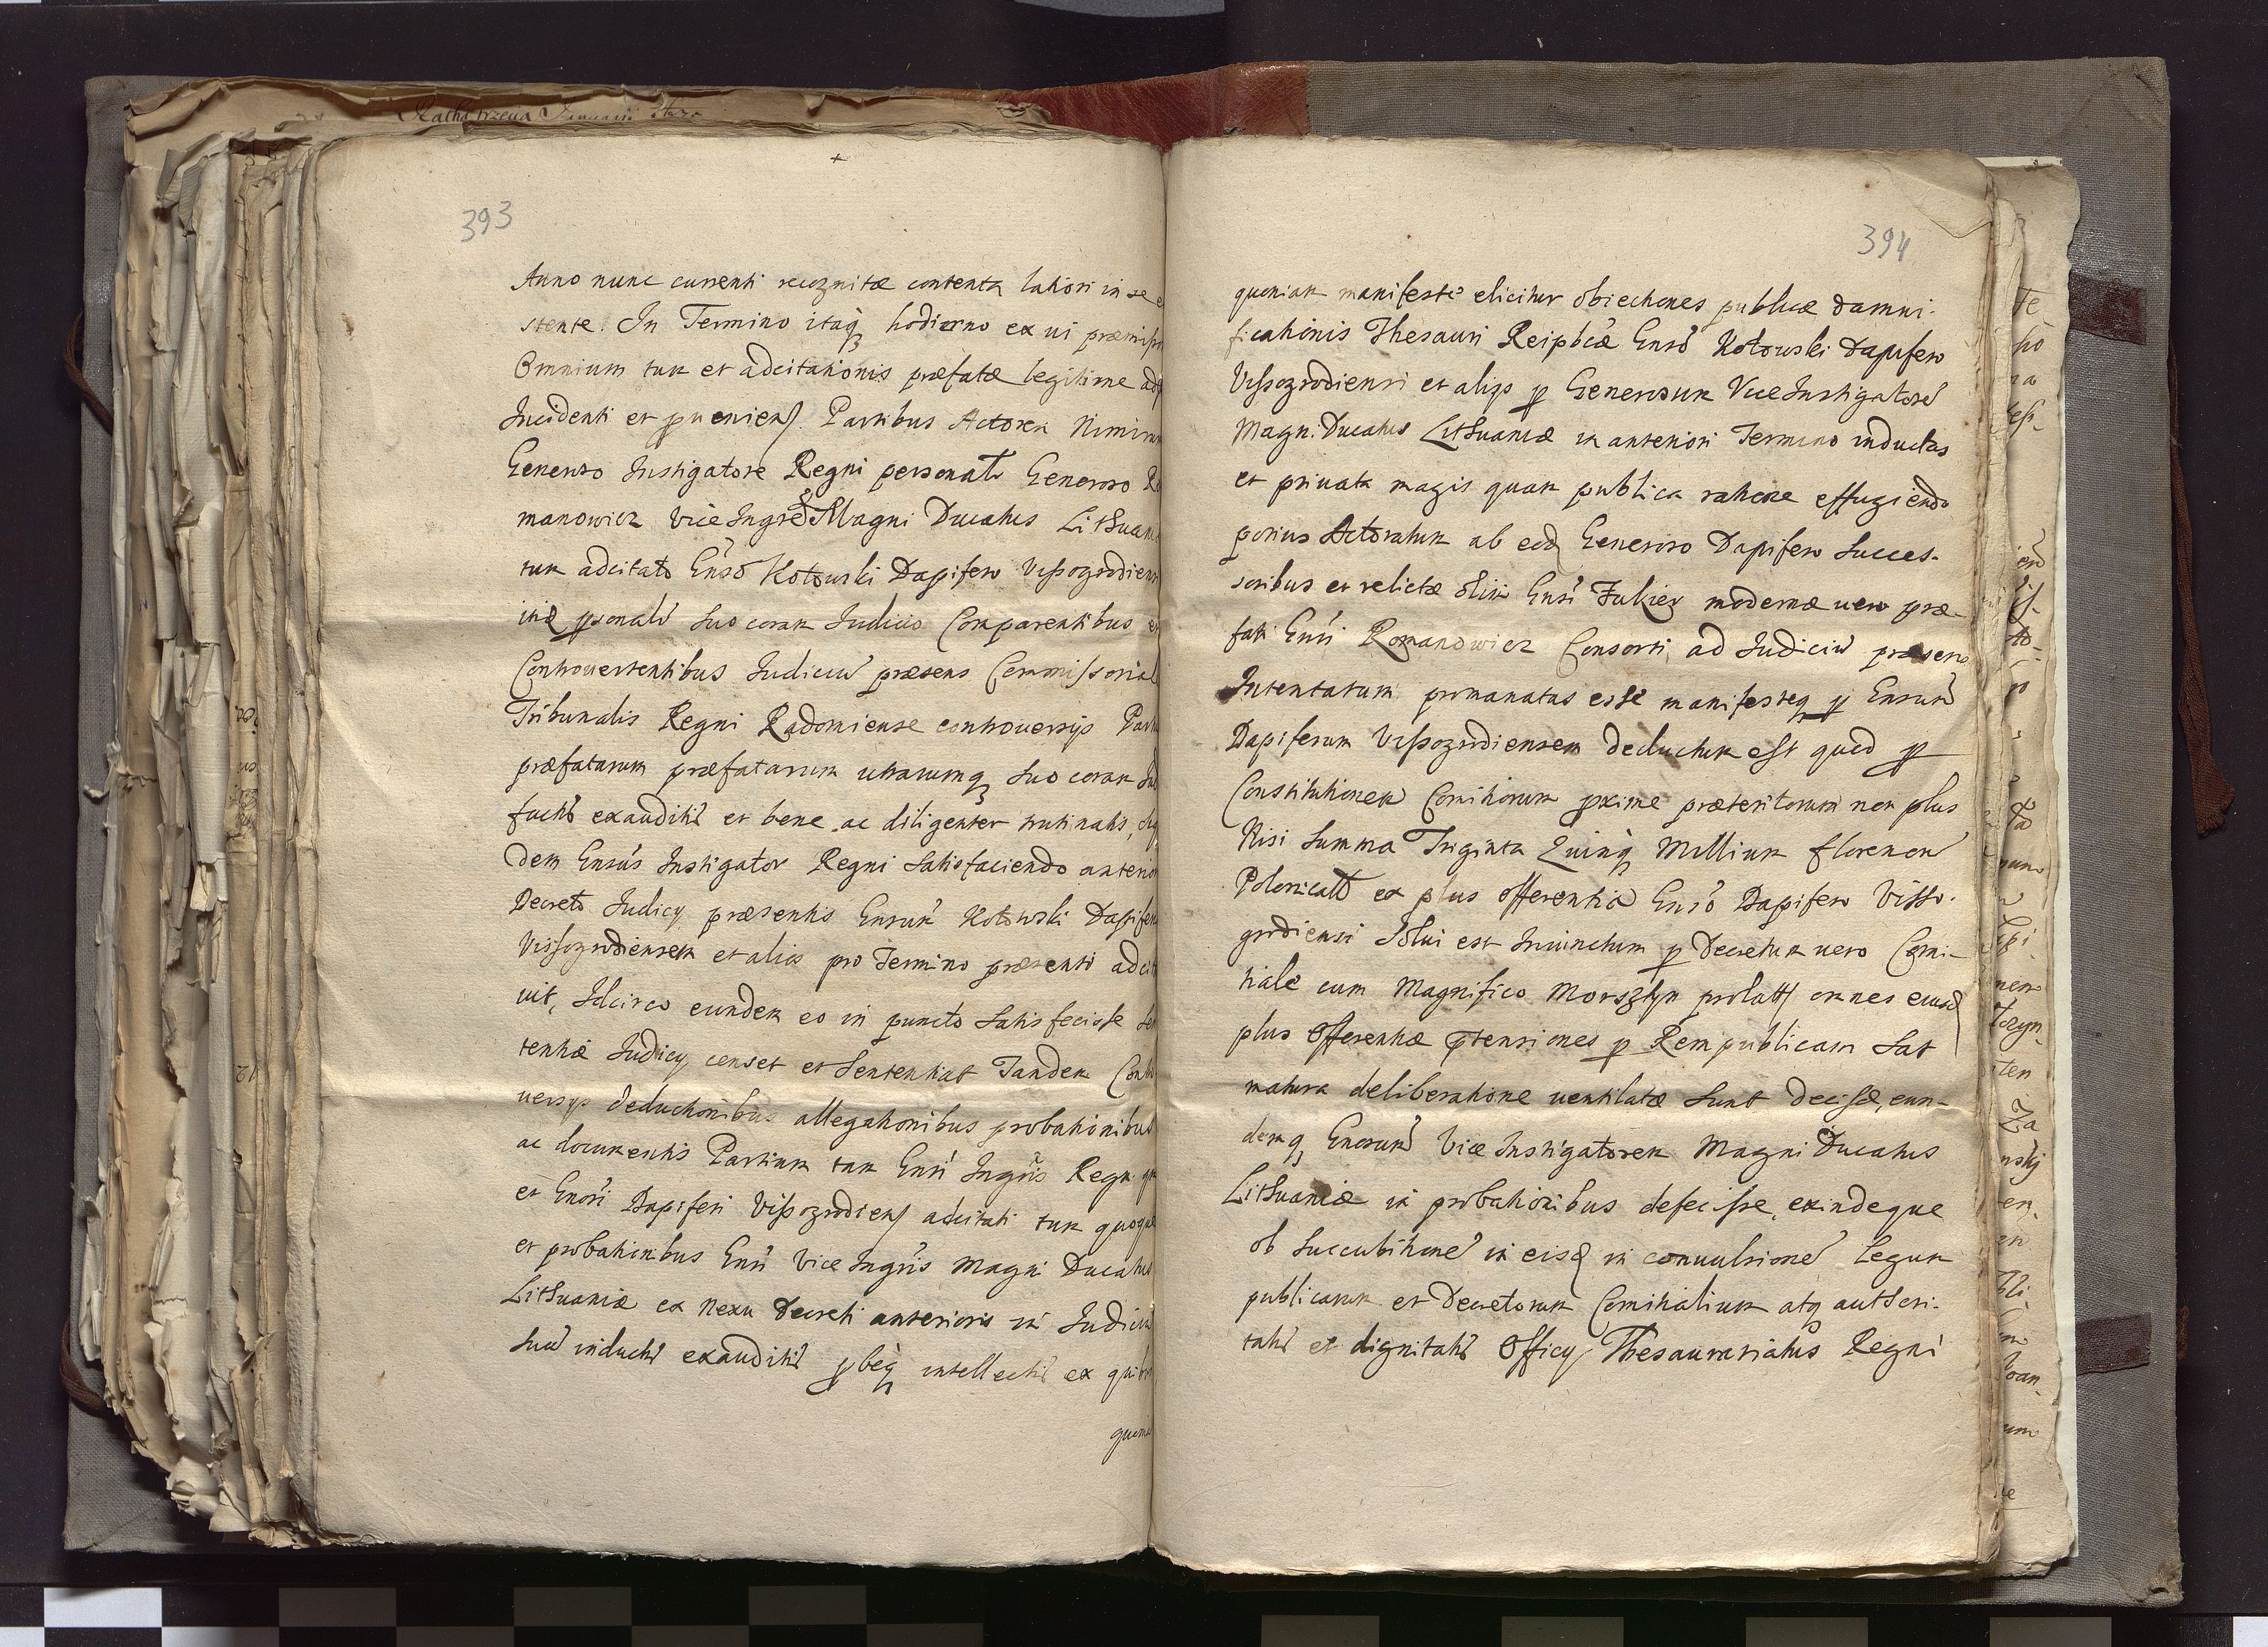 393
Anno nunc currenti recognitæ contenta latiori in se
stente. In Termino itaq hodierno ex ui præmisso
Omnium tum et adcitationis præfatæ legitime
Incidenti et pueniens. Partibus Actorea Nimirum
Generoso Instigatore Regni personalr Generoso
manowicz Vice Ingrē Magni Ducatus Lithuan
tum adcitato Gnsō Kotowski Dapifero Vissogrodiens
psonalr suo coram Iudicio Comparentibus et
Controuertentibus Iudiciū præsens Commissorial
Tribunalis Regni Radomiense controuersijs Par
præfatarum præfatarum utrarumq suo coram Iud
factis exauditis et bene ac diligenter trutinatis,
dem Gnsūs Instigator Regni Satisfaciendo anterior
Decreto Iudicij præsentis Gnsum Kotowski Dapifer
Vissogrodiensem et alios pro Termino præsenti adci
uit, Idcirco eundem eo in puncto Satisfecisse Sen
tentiæ Iudicij censet et Sententiat Tandem Contro
uersijs deductionibus allegationibus probationibus
ac documentis Partium tam Gnsi Ingris Regn
et Gnosi Dapiferi Vissogrodiens adcitati tum quoque
et probationibus Gnsi Vice Ingris Magni Ducatus
Lithuaniæ ex Nexu Decreti anterioris in Iudiciū
Suū inductis exauditis pbeq intellectis ex quibus
quonia
394
quoniam manifestè elicitur obiectiones publicæ damni-
ficationis Thesauri Reipbcæ Gnsō Kotowski Dapifero
Vissogrodiensi et alijs p Generosum Vice Instigatorē
Magn. Ducatus Lithuaniæ in anteriori Termino inductas
et priuata magis quam publica ratione effugiendo
potius Actoratum ab eod Generoso Dapifero Succes-
soribus et relictæ olim Gnsi modernæ uero præ-
fati Gnsi Romanowicz Consorti, ad Iudiciū præsens
Intentatum promanatas esse manifesteq p Gnsum
Dapiferum Vissogrodiensem deductum est quod p
Constitutionem Comitiorum pxime præteritorum non plus
Nisi Summa Triginta Quinq Millium florenorū
Polonicalī ex plus offerentia Gnsō Dapifero Visso-
grodiensi Solui est Iniunctum p Decretum uero Comi-
tiale cum Magnifico Morsztyn prolatū omnes eiusd
plus Offerentiæ ptensiones p Rempublicam Sat
matura deliberatione uentilatæ Sunt decisæ, eun-
demq Gnosum Vice Instigatorem Magni Ducatus
Lithuaniæ in probationibus defecisse, exindeque
ob Succubitionē in eisd in conuulsionē Legum
publicarum et Decretorum Comitialium atq authori-
tatis et dignitatis Officij Thesaurariatus Regni